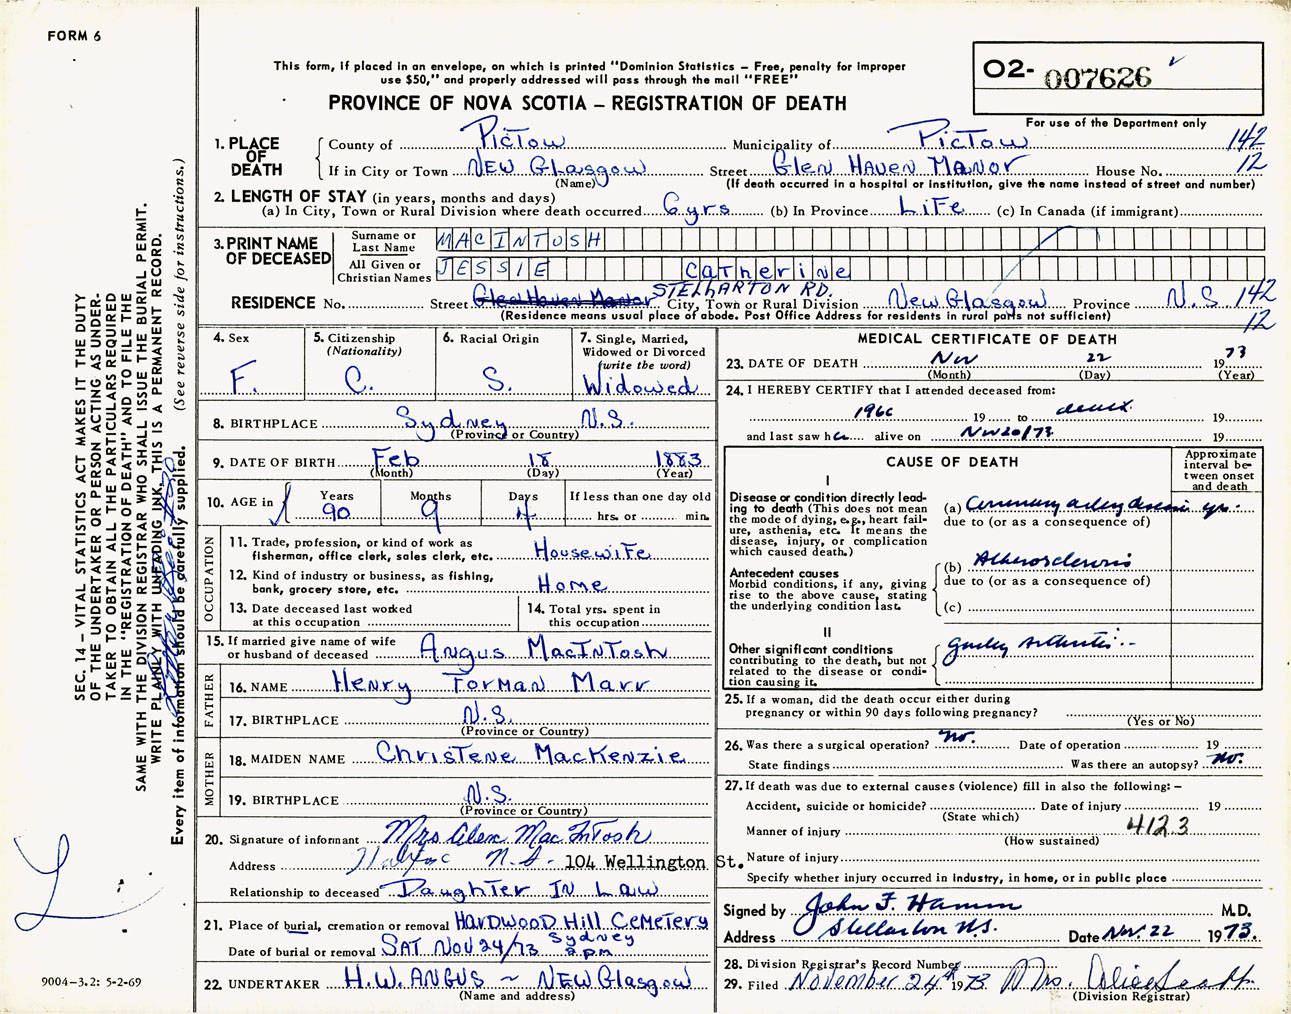 FORM 6
This form, if placed in an envelope, on which is printed "Dominion Statistics – Free, penalty for improper
use $50," and properly addressed will pass through the mail "FREE"
O2- 007626
PROVINCE OF NOVA SCOTIA – REGISTRATION OF DEATH
For use of the Department only
SEC. 14 – VITAL STATISTICS ACT MAKES IT THE DUTY
OF THE UNDERTAKER OR PERSON ACTING AS UNDER-
TAKER TO OBTAIN ALL THE PARTICULARS REQUIRED
IN THE "REGISTRATION OF DEATH" AND TO FILE THE
SAME WITH THE DIVISION REGISTRAR WHO SHALL ISSUE THE BURIAL PERMIT.
WRITE PLAINLY WITH UNFADING INK. THIS IS A PERMANENT RECORD.
Every item of information should be carefully supplied. (See reverse side for instructions.)
1. PLACE OF DEATH
County of PICTOW Municipality of PICTOW 142
If in City or Town NEW Glasgow Street Glen Haven Manor House No. 12
(Name) (If death occurred in a hospital or institution, give the name instead of street and number)
2. LENGTH OF STAY (in years, months and days)
(a) In City, Town or Rural Division where death occurred 6 yrs (b) In Province LIFE (c) In Canada (if immigrant)
3. PRINT NAME OF DECEASED
Surname or Last Name MACINTOSH
All Given or Christian Names JESSIE Catherine
RESIDENCE No. Street Glen Haven Manor STELLARTON RD. City, Town or Rural Division New Glasgow Province N.S 142
(Residence means usual place of abode. Post Office Address for residents in rural parts not sufficient) 12
4. Sex F.
5. Citizenship (Nationality) C.
6. Racial Origin S.
7. Single, Married, Widowed or Divorced (write the word) Widowed
8. BIRTHPLACE Sydney N.S.
(Province or Country)
9. DATE OF BIRTH Feb 18 1883
(Month) (Day) (Year)
10. AGE in Years 90 Months 9 Days 4 If less than one day old hrs. or min.
OCCUPATION
11. Trade, profession, or kind of work as
fisherman, office clerk, sales clerk, etc. Housewife
12. Kind of industry or business, as fishing,
bank, grocery store, etc. Home
13. Date deceased last worked
at this occupation
14. Total yrs. spent in
this occupation
15. If married give name of wife
or husband of deceased Angus MacIntosh
FATHER
16. NAME Henry Forman Marr
17. BIRTHPLACE N.S.
(Province or Country)
MOTHER
18. MAIDEN NAME Christene MacKenzie
19. BIRTHPLACE N.S.
(Province or Country)
20. Signature of informant Mrs Alex MacIntosh
Address Halifax N.S. 104 Wellington St.
Relationship to deceased Daughter In Law
21. Place of burial, cremation or removal Hardwood Hill Cemetery
Date of burial or removal SAT NOV 24/73 Sydney 2 pm
22. UNDERTAKER H.W. ANGUS ~ NEW Glasgow
(Name and address)
MEDICAL CERTIFICATE OF DEATH
23. DATE OF DEATH Nov 22 1973
(Month) (Day) (Year)
24. I HEREBY CERTIFY that I attended deceased from:
1966 19 to death 19
and last saw her alive on Nov 20/73 19
CAUSE OF DEATH
Approximate interval between onset and death
I
Disease or condition directly lead-
ing to death (This does not mean
the mode of dying, e.g., heart fail-
ure, asthenia, etc. It means the
disease, injury, or complication
which caused death.)
(a) Coronary artery disease yrs.
due to (or as a consequence of)
Antecedent causes
Morbid conditions, if any, giving
rise to the above cause, stating
the underlying condition last.
(b) Atherosclerosis
due to (or as a consequence of)
(c)
II
Other significant conditions
contributing to the death, but not
related to the disease or condi-
tion causing it.
25. If a woman, did the death occur either during
pregnancy or within 90 days following pregnancy?
(Yes or No)
26. Was there a surgical operation? no. Date of operation 19
State findings Was there an autopsy? no.
27. If death was due to external causes (violence) fill in also the following: –
Accident, suicide or homicide? Date of injury 19
(State which)
Manner of injury 4123
(How sustained)
Nature of injury
Specify whether injury occurred in industry, in home, or in public place
Signed by John F. Hamm M.D.
Address Stellarton N.S. Date Nov. 22 1973.
28. Division Registrar's Record Number
29. Filed November 24th 1973 Mrs. Alice Scott
(Division Registrar)
9004–3.2: 5-2-69